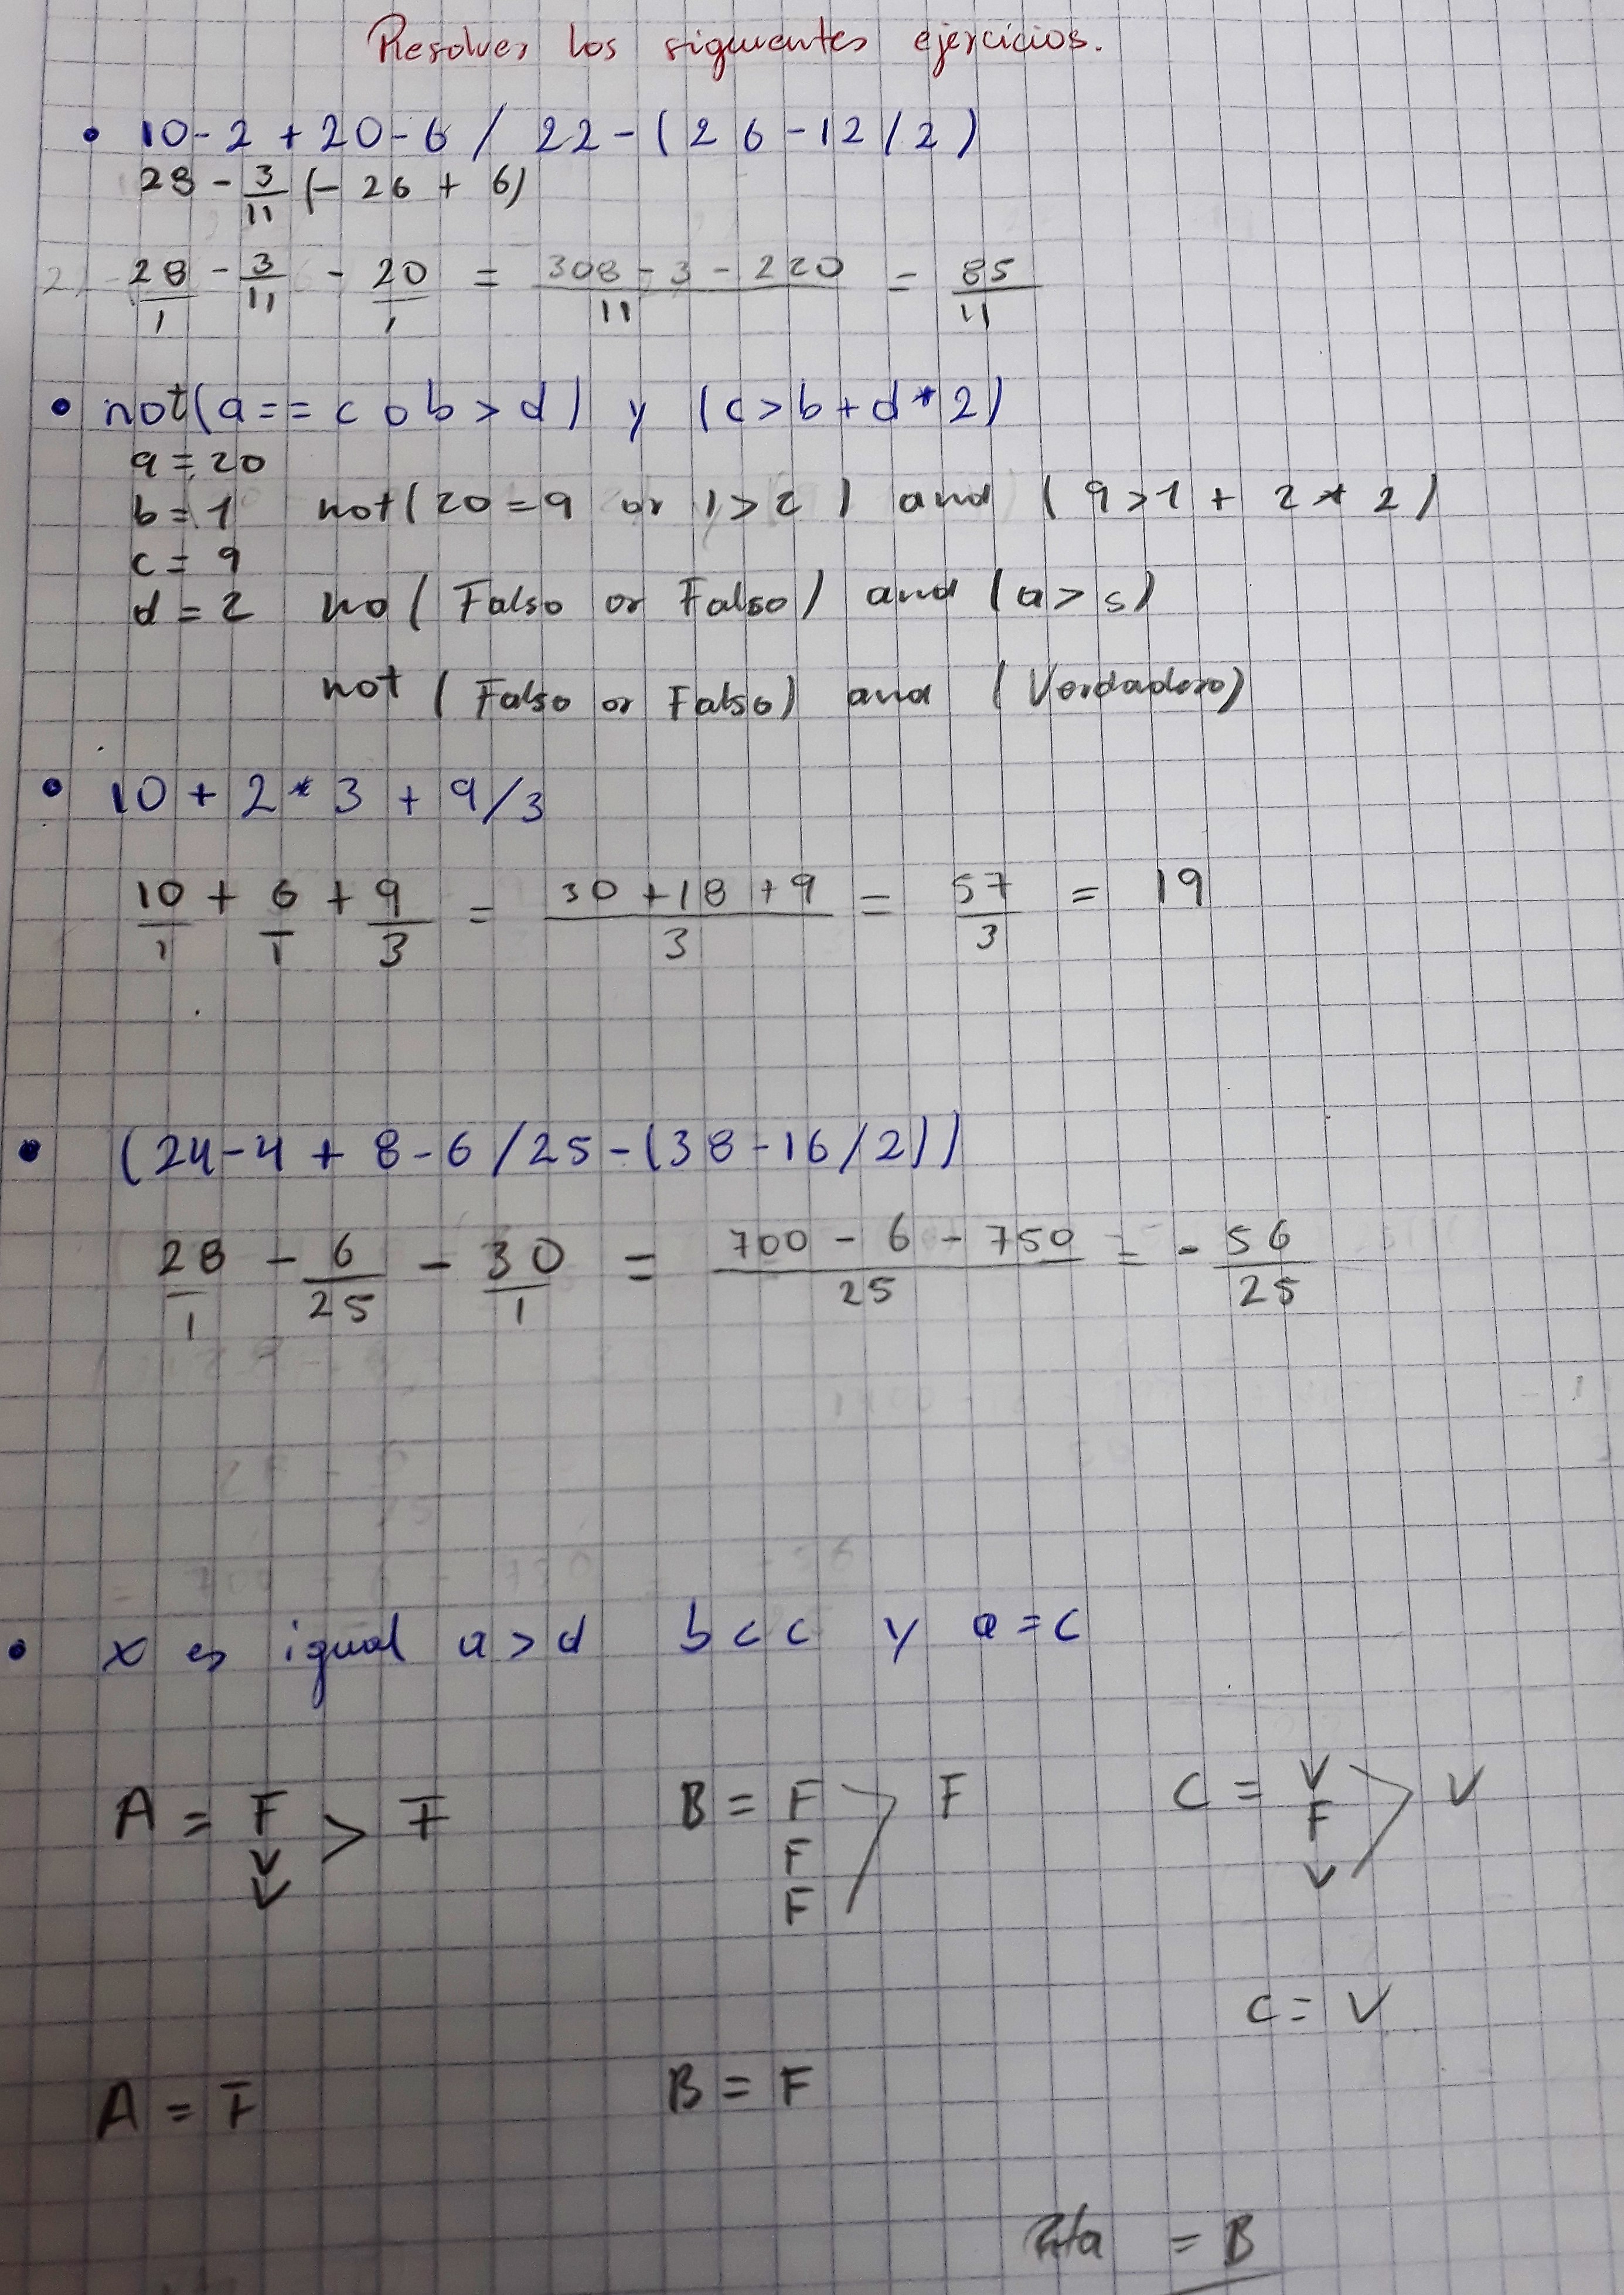 Resolver los siguientes ejercicios.
• 10-2 + 20-6 / 22-(26-12/2)
28 - 3/11 (- 26 + 6)
28/1 - 3/11 - 20/1 = 308-3-220/11 = 85/11
• not(a==c o b>d) y (c>b+d*2)
a=20
b=1 not(20=9 or 1>2) and (9>1+2*2)
c=9
d=2 no(Falso or Falso) and (a>5)
not (Falso or Falso) and (Verdadero)
• 10+2*3+9/3
10/1 + 6/1 + 9/3 = 30+18+9/3 = 57/3 = 19
• (24-4+8-6/25-(38-16/2))
28/1 - 6/25 - 30/1 = 700-6-750/25 = -56/25
• x es igual a>d b<c y a=c
A = F > F B = F > F C = V > V
V F F
V F V
C=V
A=F B=F
Rta = B